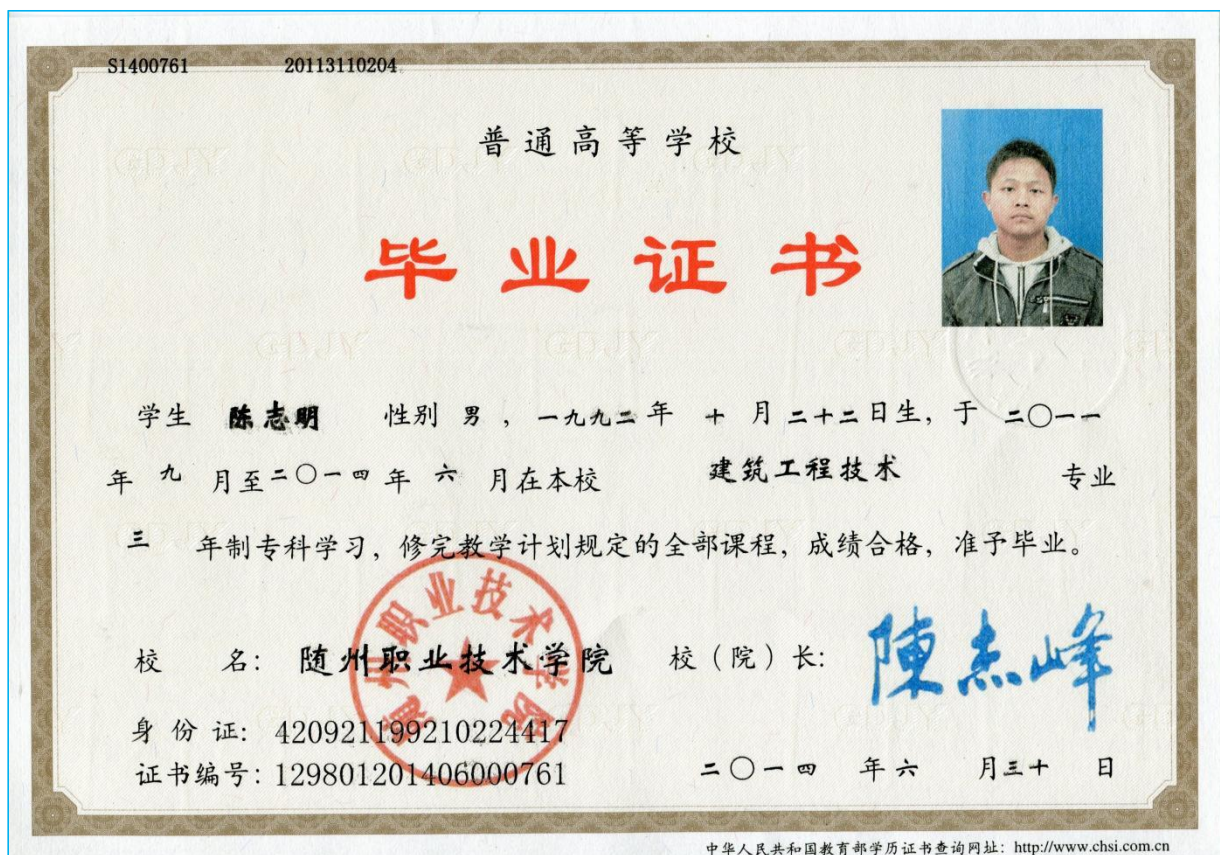 S1400761 20113110204
普通高等学校
毕业证书
学生 陈志明 性别 男，一九九二年 十 月二十二日生，于 二〇一一
年 九 月至二〇一四年 六 月在本校 建筑工程技术 专业
三 年制专科学习，修完教学计划规定的全部课程，成绩合格，准予毕业。
随州职业技术学院
校 名：随州职业技术学院 校（院）长：陳杰峰
身份证：420921199210224417
证书编号：129801201406000761 二〇一四 年六 月三十 日
中华人民共和国教育部学历证书查询网址：http://www.chsi.com.cn